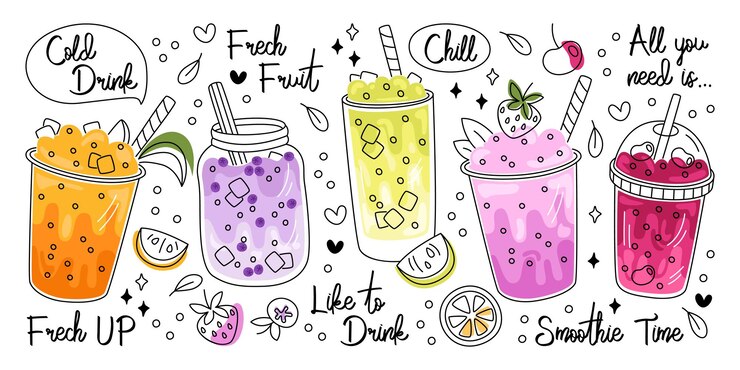 Cold
Drink
Frech
Fruit
Chill
All you
need is...
Frech UP
Like to
Drink
Smoothie Time